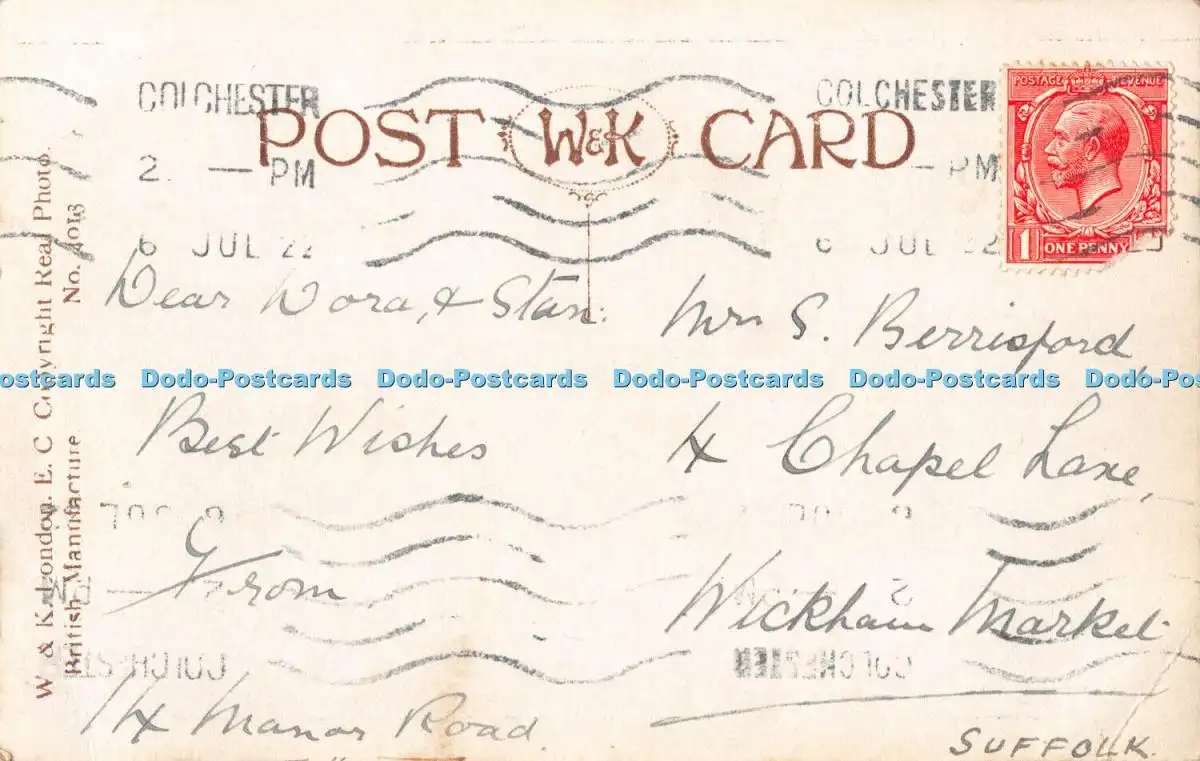 COLCHESTER
2. — PM
6 JUL 22
COLCHESTER
— PM
6 JUL 22
POST W&K CARD
POSTAGE REVENUE
1 ONE PENNY
W & K. London. E. C Copyright Real Photo.
British Manufacture No. 4013
Dear Dora, & Stan:
Best Wishes
From
14 Manor Road.
Mrs S. Berrisford
4 Chapel Lane,
Wickham Market
SUFFOLK.
ostcards Dodo-Postcards Dodo-Postcards Dodo-Postcards Dodo-Postcards Dodo-Pos
COLCHESTER
COLCHESTER